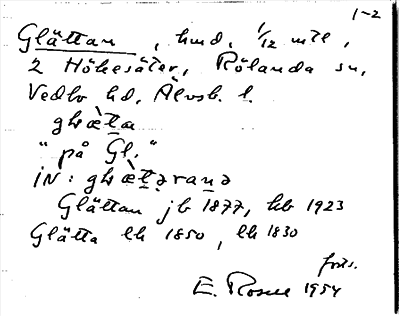 1-2
Glättan, hmd, 1/12 mtl,
2 Hökesäter, Rölanda sn,
Vedbo hd, Älvsb. l.
"på Gl."
IN:
Glättan jb 1877, kb 1923
Glätta lk 1850, lk 1830
forts.
E. Rosell 1954